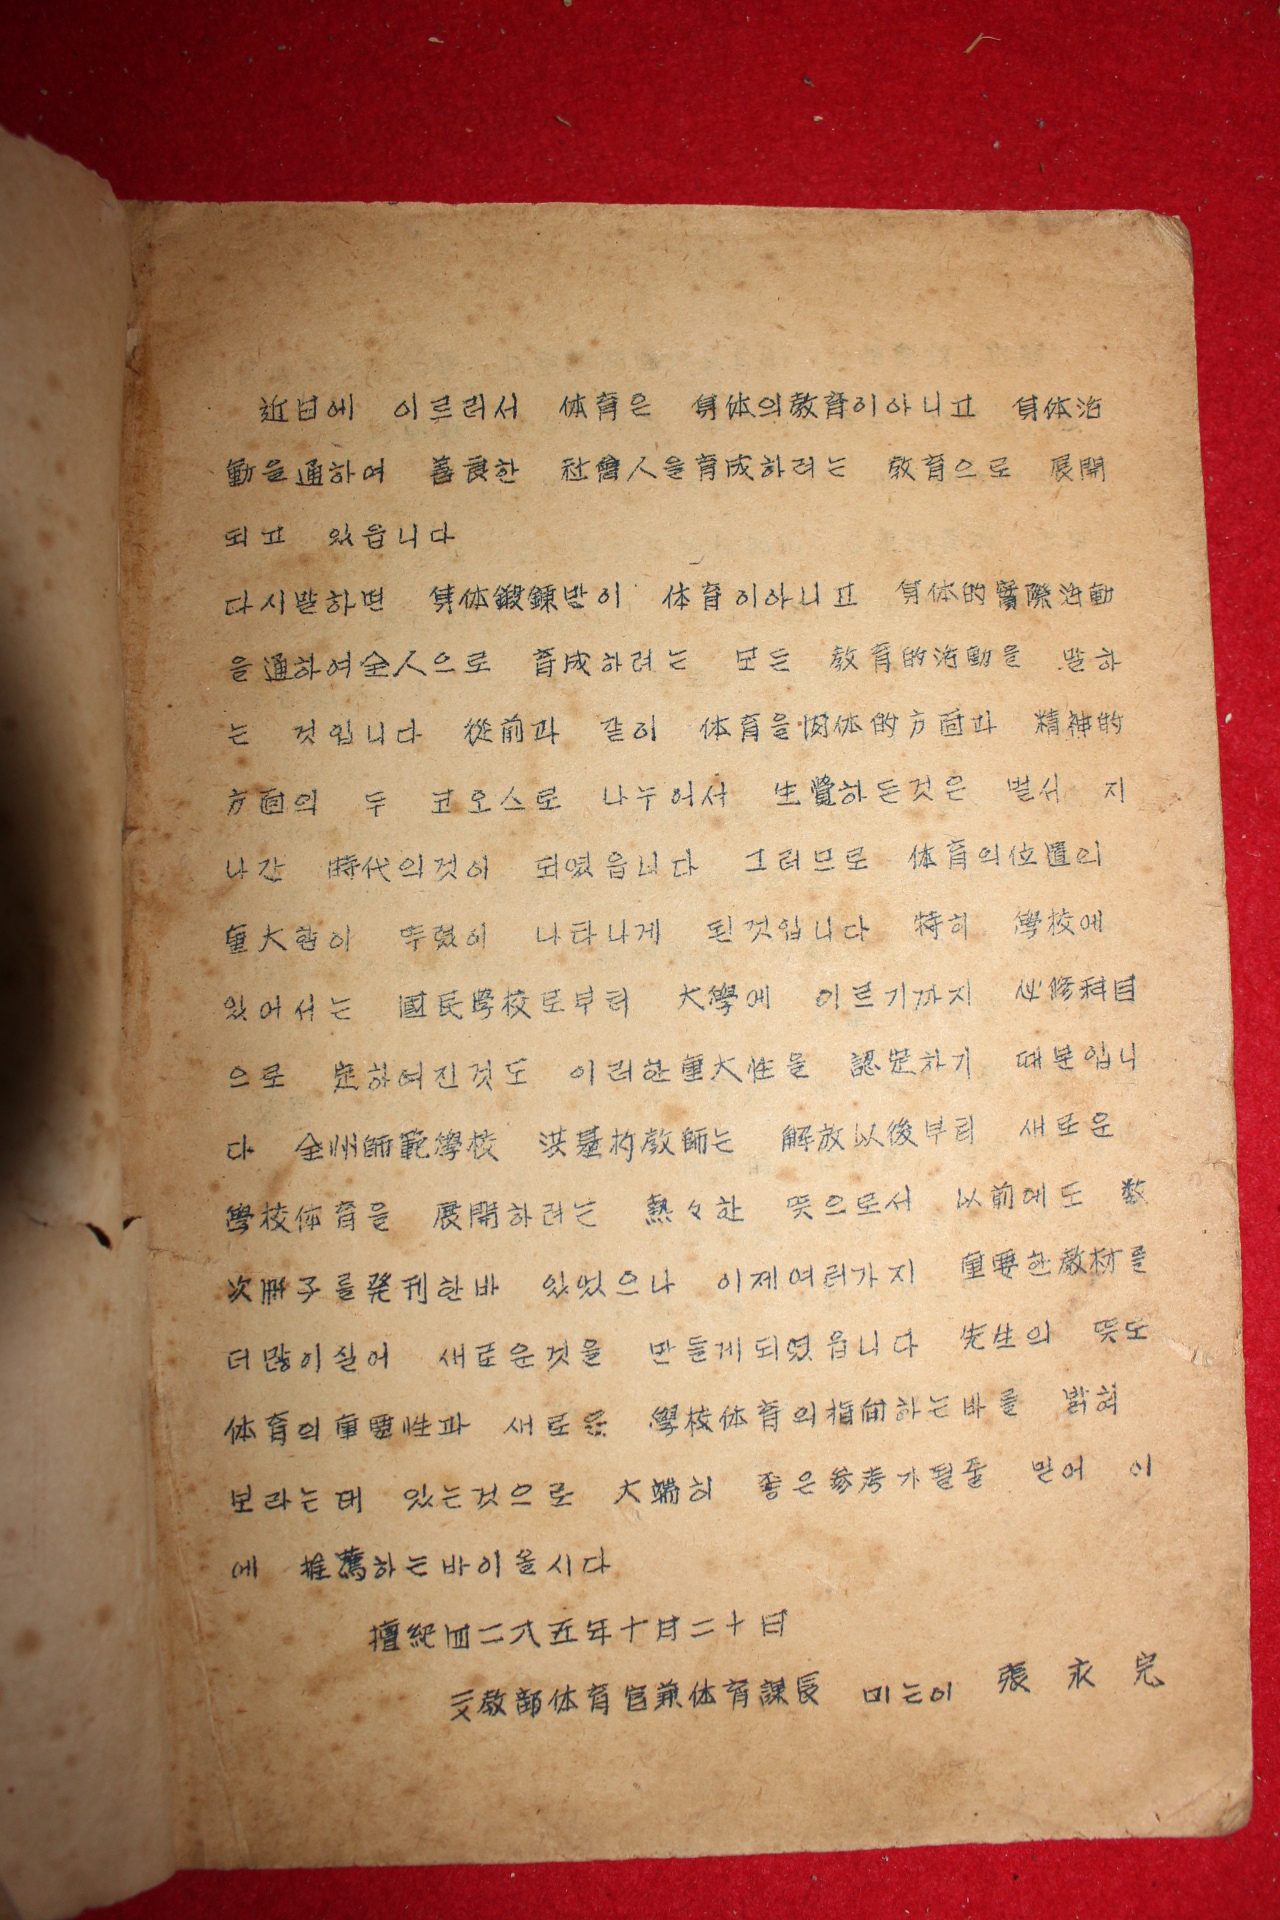 近日에 이르러서 体育은 身体의敎育이아니고 身体活
動을通하여 善良한 社會人을育成하려는 敎育으로 展開
되고 있읍니다
다시말하면 身体鍛鍊만이 体育이아니고 身体的實際活動
을通하여全人으로 育成하려는 모든 敎育的活動을 말하
는 것입니다 從前과 같이 体育을肉体的方面과 精神的
方面의 두 코오스로 나누어서 生覺하든것은 벌서 지
나간 時代의것이 되였읍니다 그러므로 体育의位置의
重大함이 뚜렸이 나타나게 된것입니다 特히 學校에
있어서는 國民學校로부터 大學에 이르기까지 必修科目
으로 定하여진것도 이러한重大性을 認定하기 때문입니
다 全州師範學校 洪基杓敎師는 解放以後부터 새로운
學校体育을 展開하려는 熱々한 뜻으로서 以前에도 数
次册子를発刊한바 있었으나 이제여러가지 重要한敎材를
더많이실어 새로운것을 만들게되였읍니다 先生의 뜻도
体育의重要性과 새로운 學校体育의指向하는바를 밝혀
보라는데 있는것으로 大端히 좋은参考가될줄 믿어 이
에 推薦하는바이올시다
檀紀四二八五年十月二十日
文敎部体育官兼体育課長 미는이 張 永 完